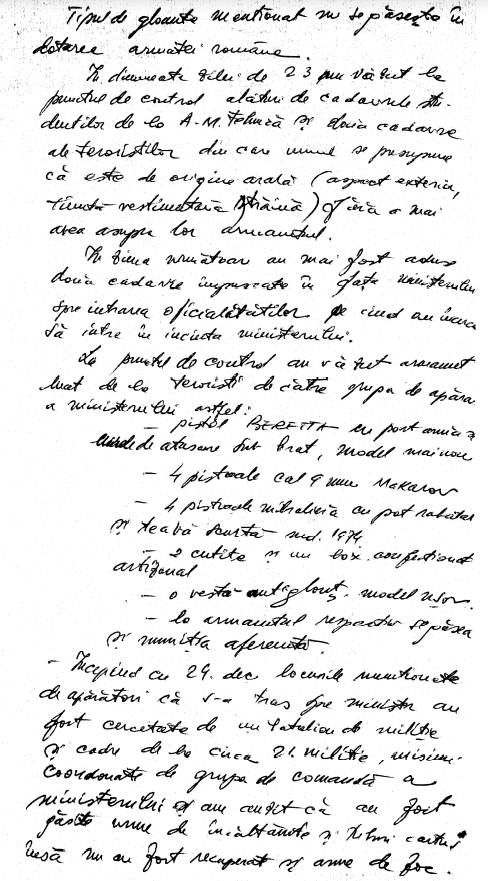 Tipul de gloanțe menționat nu se găsește în
dotarea armatei române.
În dimineața zilei de 23 am văzut la
punctul de control alături de cadavrele stu-
denților de la A.M. Tehnică și două cadavre
ale teroriștilor din care unul se presupune
că este de origine arabă (aspect exterior,
ținută vestimentară străină) fără a mai
avea asupra lor armamentul.
În ziua următoare au mai fost aduse
două cadavre împușcate în fața ministerului
spre intrarea oficialităților pe cînd au încercat
să intre în incinta ministerului.
La punctul de control am văzut armament
luat de la teroriști de către grupa de apăra
a ministerului astfel:
– pistol BERETTA cu port armă și
de atașare sub braț, model mai nou
– 4 pistoale cal 9 mm Makarov
– 4 pistoale mitralieră cu pat rabatat
și țeavă scurtă md. 1974
– 2 cuțite și un box confecționat
artizanal
– o vestă antiglonț, model ușor.
– la armamentul respectiv se găsea
și muniția aferentă.
– Începînd cu 24. dec locurile menționate
de apărători că s-a tras spre minister au
fost cercetate de un batalion de miliție
și cadre de la circa 21 miliție, misiuni
coordonate de grupa de comandă a
ministerului și am auzit că au fost
găsite urme de încălțăminte și tuburi cartuș
însă nu au fost recuperat și arme de foc.